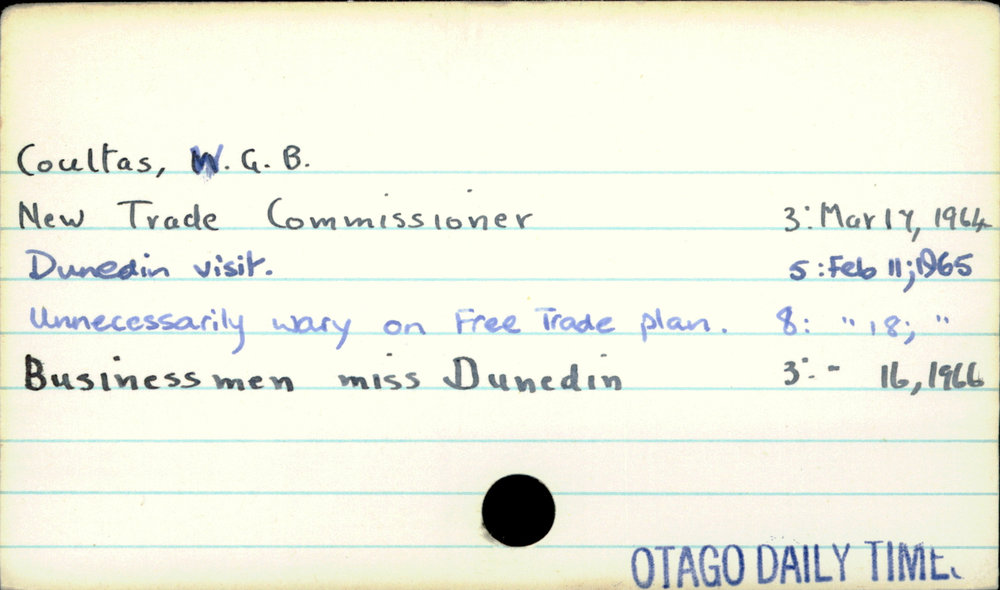 Coultas, W. G. B.
New Trade Commissioner 3: Mar 17, 1964
Dunedin visit. 5: Feb 11; 1965
Unnecessarily wary on Free Trade plan. 8: " 18; "
Businessmen miss Dunedin 3: - 16, 1966
OTAGO DAILY TIME